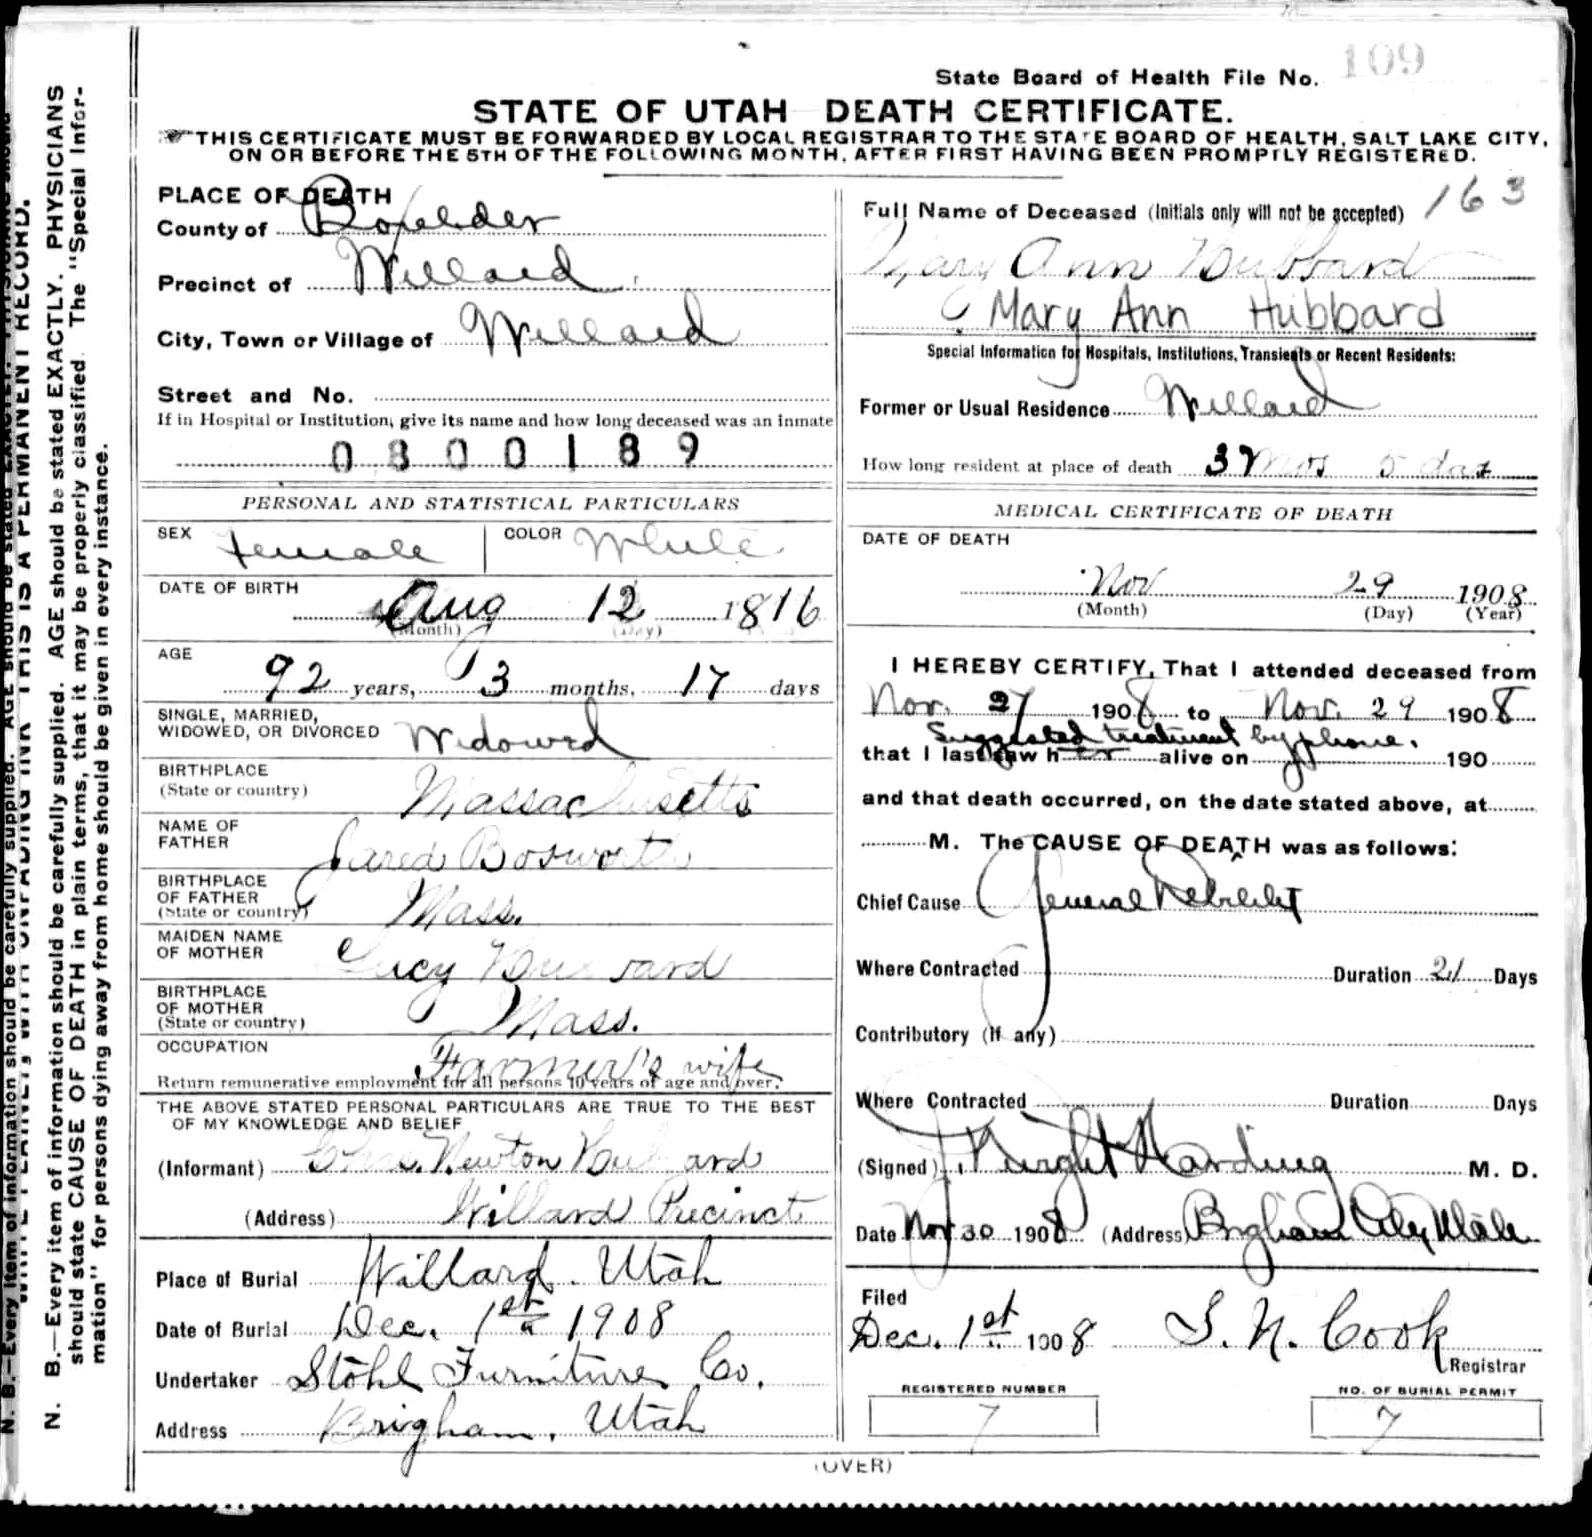 109
State Board of Health File No.
STATE OF UTAH DEATH CERTIFICATE.
THIS CERTIFICATE MUST BE FORWARDED BY LOCAL REGISTRAR TO THE STATE BOARD OF HEALTH, SALT LAKE CITY,
ON OR BEFORE THE 5TH OF THE FOLLOWING MONTH, AFTER FIRST HAVING BEEN PROMPTLY REGISTERED.
PLACE OF DEATH
County of Boxelder
Precinct of Willard
City, Town or Village of Willard
Street and No.
If in Hospital or Institution, give its name and how long deceased was an inmate
0800189
PERSONAL AND STATISTICAL PARTICULARS
SEX Female COLOR White
DATE OF BIRTH
Aug 12 1816
(Month) (Day)
AGE
92 years, 3 months, 17 days
SINGLE, MARRIED,
WIDOWED, OR DIVORCED Widowed
BIRTHPLACE
(State or country) Massachusetts
NAME OF
FATHER Jared Bosworth
BIRTHPLACE
OF FATHER
(State or country) Mass.
MAIDEN NAME
OF MOTHER Lucy
BIRTHPLACE
OF MOTHER
(State or country) Mass.
OCCUPATION Farmer's wife
Return remunerative employment for all persons 10 years of age and over.
THE ABOVE STATED PERSONAL PARTICULARS ARE TRUE TO THE BEST
OF MY KNOWLEDGE AND BELIEF
(Informant) Chas. Newton Hubbard
(Address) Willard Precinct
Place of Burial Willard, Utah
Date of Burial Dec. 1st 1908
Undertaker Stohl Furniture Co.
Address Brigham, Utah
163
Full Name of Deceased (Initials only will not be accepted)
Mary Ann Hubbard
Mary Ann Hubbard
Special Information for Hospitals, Institutions, Transients or Recent Residents:
Former or Usual Residence Willard
How long resident at place of death 3 Mos 5 das
MEDICAL CERTIFICATE OF DEATH
DATE OF DEATH
Nov 29 1908
(Month) (Day) (Year)
I HEREBY CERTIFY, That I attended deceased from
Nov. 27 1908 to Nov. 29 1908
Suggested treatment by phone.
that I last saw her alive on 190
and that death occurred, on the date stated above, at
M. The CAUSE OF DEATH was as follows:
Chief Cause General Debility
Where Contracted Duration 21 Days
Contributory (If any)
Where Contracted Duration Days
(Signed) Harding M. D.
Date Nov 30 1908 (Address) Brigham City Utah
Filed
Dec. 1st 1908 S. N. Cook
Registrar
REGISTERED NUMBER
7
NO. OF BURIAL PERMIT
7
(OVER)
N. B.—Every item of information should be carefully supplied. AGE should be stated EXACTLY. PHYSICIANS
should state CAUSE OF DEATH in plain terms, that it may be properly classified. The "Special Infor-
mation" for persons dying away from home should be given in every instance.
WRITE PLAINLY, WITH UNFADING INK—THIS IS A PERMANENT RECORD.